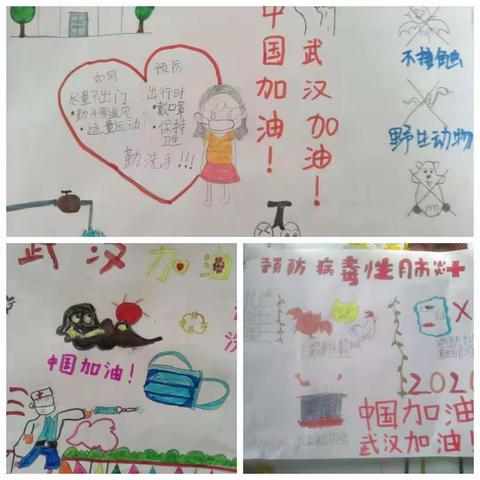 中国加油！
武汉加油！
如何 预防
尽量不出门
出行时
戴口罩
适量运动！
保持
卫生
勤洗手！！！
不接触
野生动物
武汉加油
中国加油！
预防病毒性肺炎
2020
中国加油
武汉加油！